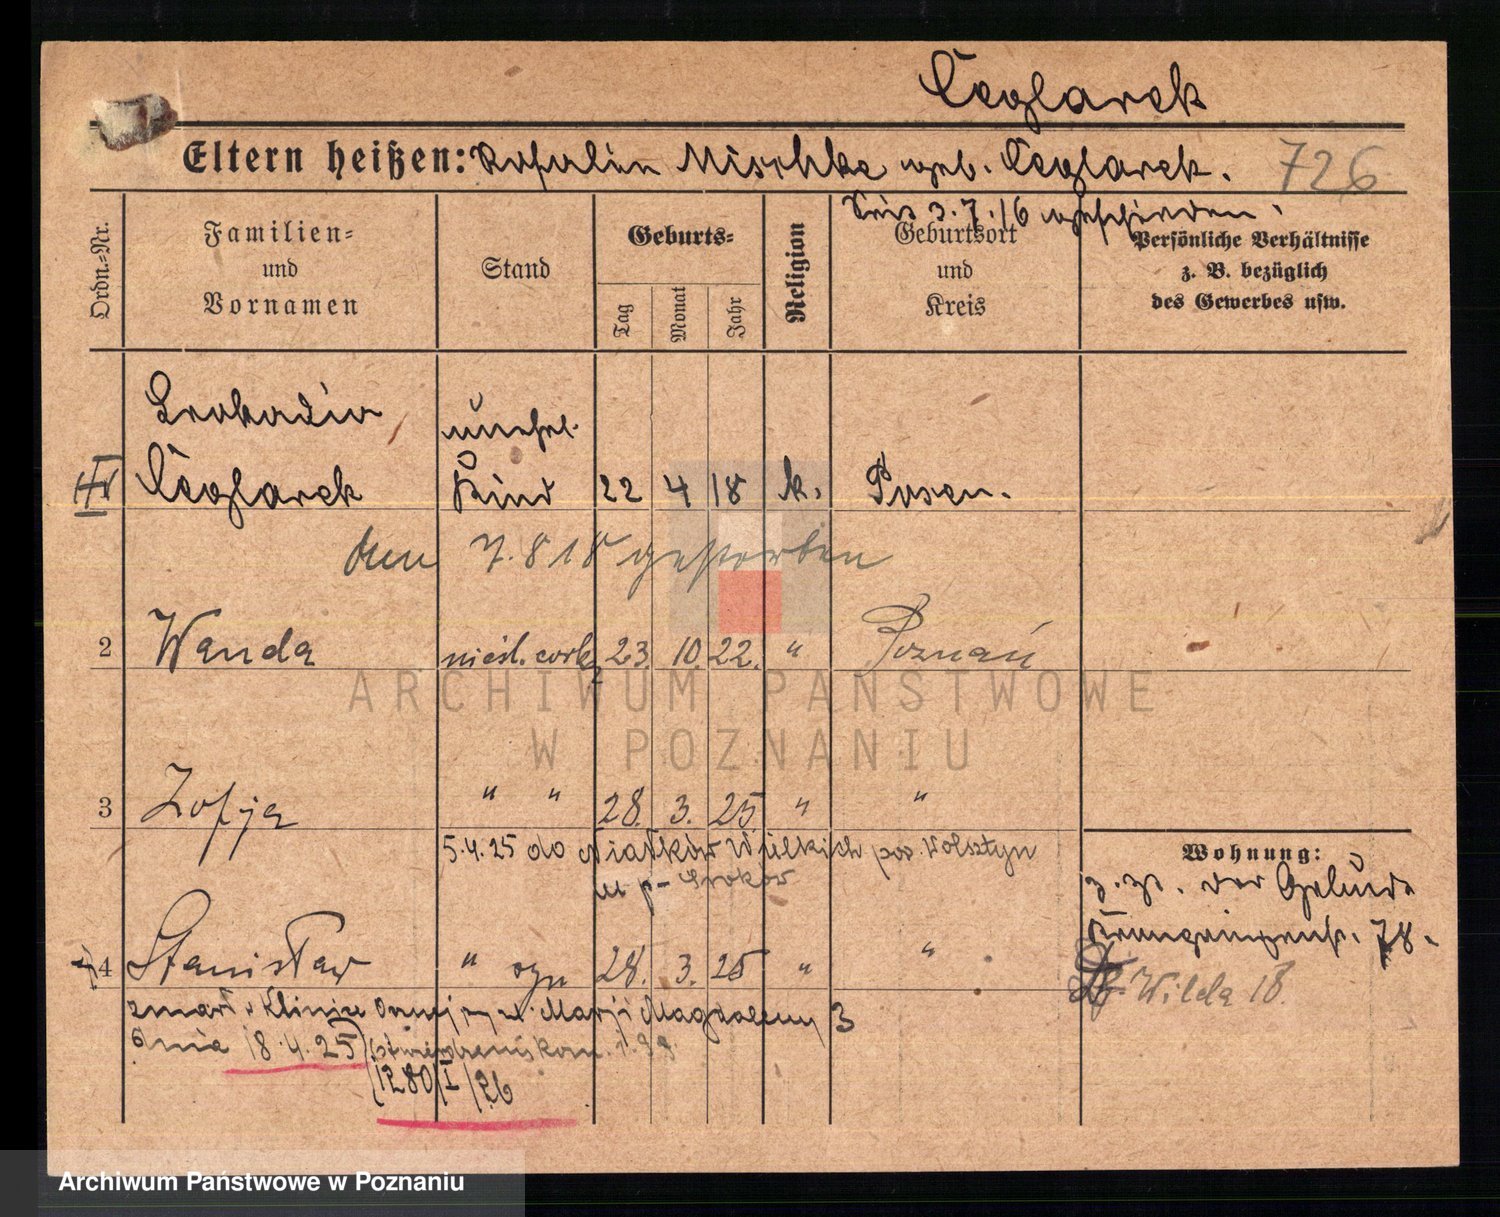 Ceglarek
Eltern heißen: Rosalie Mischke geb. Ceglarek.
726
seit 3.7.16 geschieden.
Ordn.-Nr.
Familien-
und
Vornamen
Stand
Geburts-
Tag
Monat
Jahr
Religion
Geburtsort
und
Kreis
Persönliche Verhältnisse
z. B. bezüglich
des Gewerbes usw.
Leokadia
Ceglarek
unehel.
Kind
22 4 18 k. Posen.
den 7.8.18 gestorben
2 Wanda niesl. córka 23. 10. 22. " Poznań
3 Zofja " " 28. 3. 25. " "
5.4.25 do Wielkich pow. Wolsztyn
u p.
Wohnung:
z. Zt. der Gebäude
78.
Wilda 18.
4 Stanisław " syn 28. 3. 25 " "
zmarł w Klinice przy ul. Marji Magdaleny 3
dnia 18.4.25
1280/I/26
ARCHIWUM PAŃSTWOWE
W POZNANIU
Archiwum Państwowe w Poznaniu